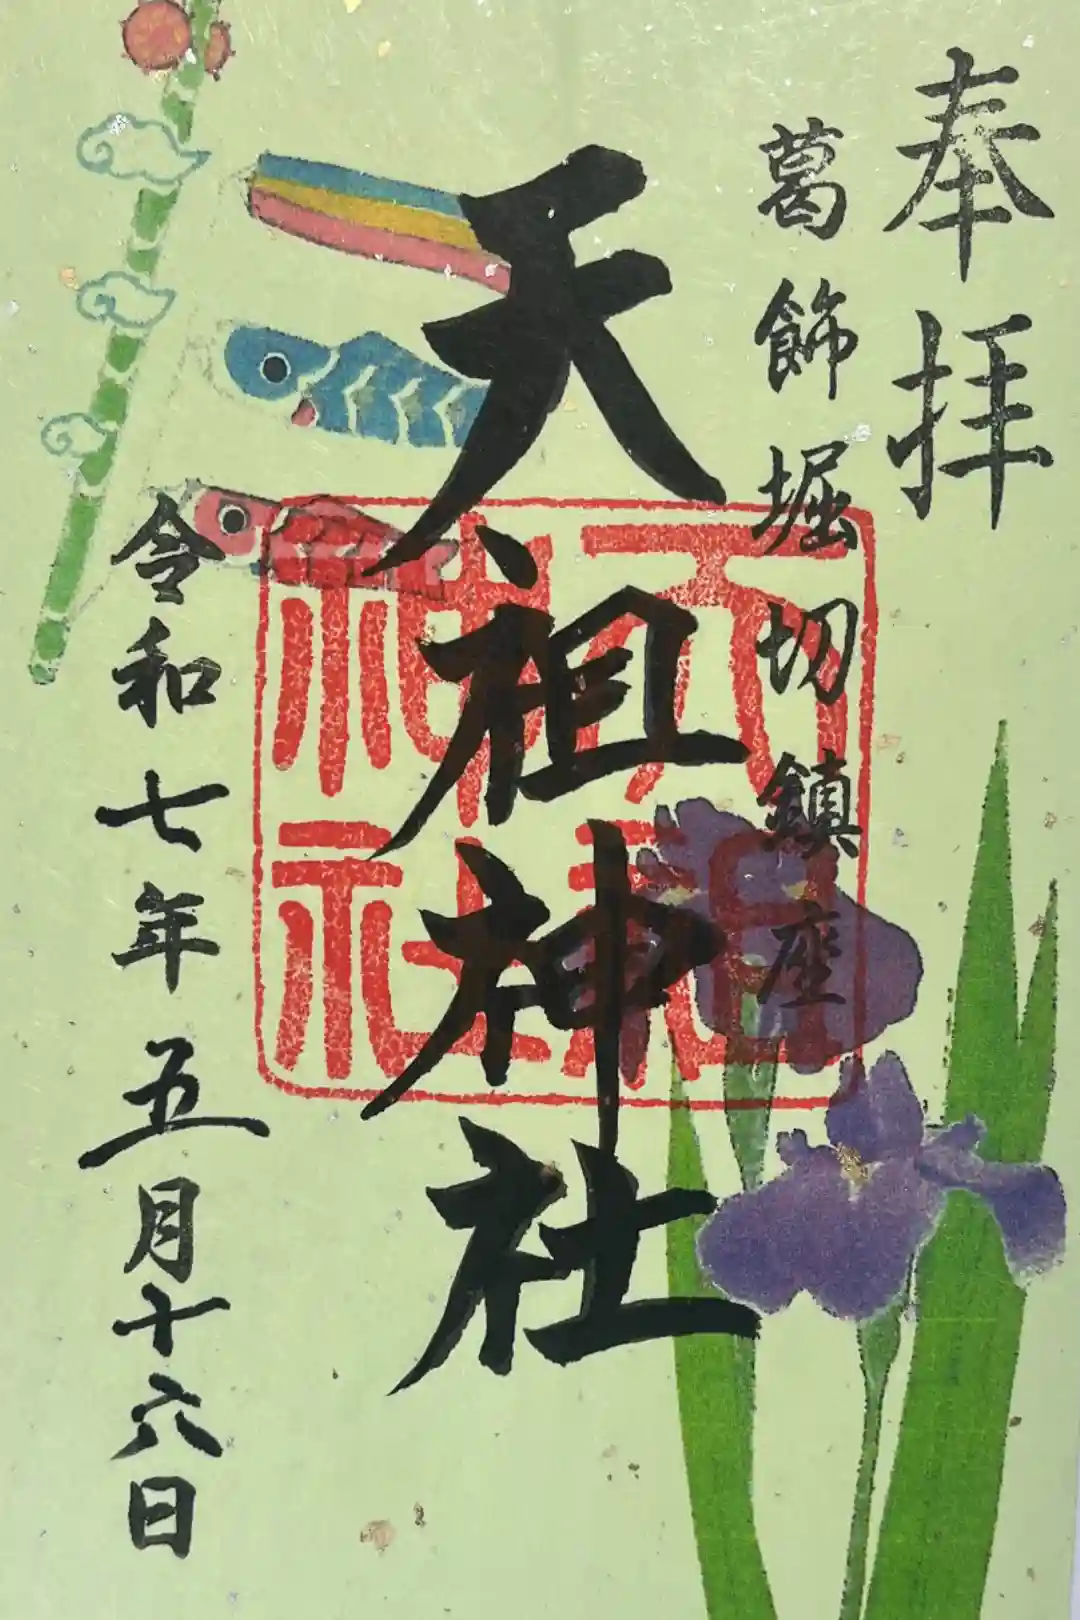 奉拝
葛飾堀切鎮座
天祖神社
天祖神社
令和七年五月十六日